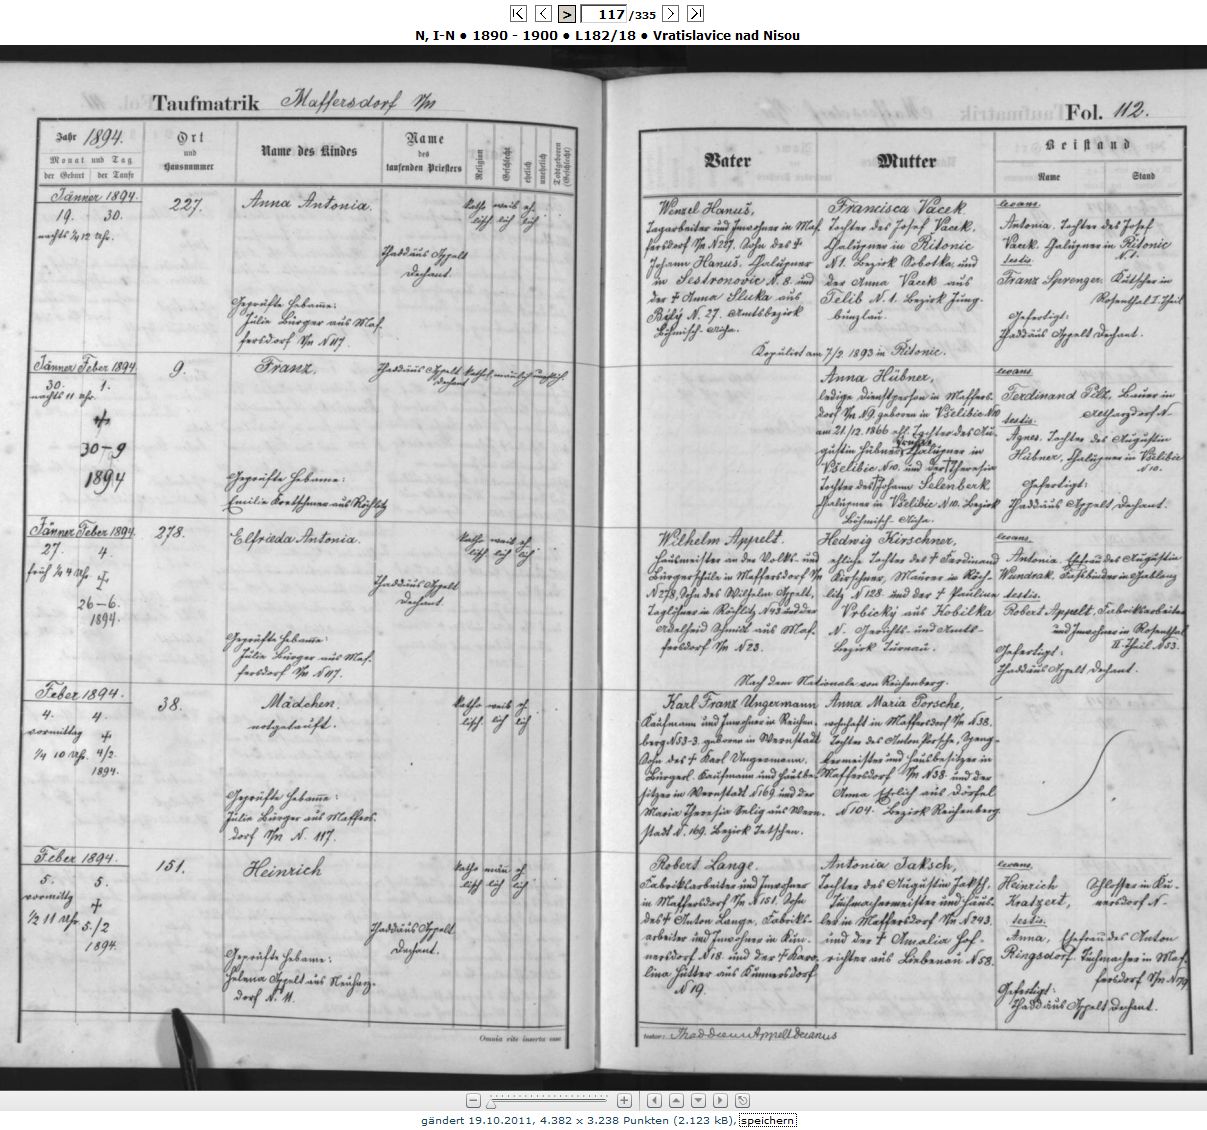 117 /335
N, I-N ● 1890 - 1900 ● L182/18 ● Vratislavice nad Nisou
Taufmatrik Maffersdorf r/n
Fol. 112.
Jahr 1894.
Monat und Tag
der Geburt der Taufe
Ort
und
Hausnummer
Name des Kindes
Name
des
taufenden Priesters
Religion
Geschlecht
ehelich
unehelich
Todtgeboren
(Geschlecht)
Vater
Mutter
Beistand
Name Stand
Jänner 1894.
19. 30.
nachts 1/4 12 Uhr.
227.
Anna Antonia.
Thaddäus Appelt
Dechant.
katho weib eh
lisch lich lich
Geprüfte Hebamme:
Julie Bürger aus Maf-
fersdorf r/n N 117.
Wenzel Hanuš,
Tagarbeiter und Inwohner in Maf-
fersdorf r/n N 227. Sohn des †
Johann Hanuš. Chalupner
in Sestronovic N. 8. und
der † Anna Sluka aus
Bilý N. 27. Amtsbezirk
Böhmisch-Aicha.
Francisca Vacek
Tochter des Josef Vacek,
Chalupner in Ritonic
N 1. Bezirk Sobotka und
der Anna Vacek aus
Telib N. 1. Bezirk Jung-
bunzlau.
Kopulirt am 7/2 1893 in Ritonic.
levans.
Antonia. Tochter des Josef
Vacek. Chalupner in Ritonic
N 1.
testis.
Franz Sprenger. Kutscher in
Rosenthal I. Theil
Gefertigt:
Thaddäus Appelt Dechant.
Jänner Feber 1894
30. 1.
nachts 11 Uhr.
30–9
1894
9.
Franz.
Thaddäus Appelt
Dechant
kathol. männlich unehlich.
Geprüfte Hebamme:
Emilie Kretschmer aus Röchlitz
Anna Hübner,
ledige Dienstperson in Maffers-
dorf r/n N 9. geboren in Všelibic N 10
am 21./12. 1866 ehl. Tochter des Au-
gustin Hübner, Chalupner in
Všelibic N 10. und der † Theresia
Tochter des † Johann Selenberk
Chalupner in Všelibic N 10. Bezirk
Böhmisch-Aicha.
levans.
Ferdinand Pilz, Bauer in
testis.
Agnes. Tochter des Augustin
Hübner, Chalupner in Všelibic
N 10.
Gefertigt:
Thaddäus Appelt Dechant.
Jänner Feber 1894.
27. 4.
früh 1/4 4 Uhr
26–6.
1894.
278.
Elfrieda Antonia.
Thaddäus Appelt
Dechant.
katho weib eh
lisch lich lich
Geprüfte Hebamme:
Julie Bürger aus Maf-
fersdorf r/n N 117.
Wilhelm Appelt.
Hausmeister an der Volks- und
Bürgerschule in Maffersdorf r/n
N 278, Sohn des Wilhelm Appelt,
Taglöhner in Röchlitz N 43 und der
Adelheid Schmidt aus Maf-
fersdorf r/n N 23.
Hedwig Kirschner,
ehliche Tochter des † Ferdinand
Kirschner, Maurer in Röch-
litz N 128. und der † Pauline
Vrbický aus Kobilka
N. Gerichts- und Amts-
bezirk Turnau.
Nach dem Nationale von Reichenberg.
levans.
Antonia. Ehefrau des Augustin
Wundrak. Faßbinder in Gablonz
testis.
Robert Appelt, Fabriksarbeiter
und Inwohner in Rosenthal
II. Theil N 53.
Gefertigt:
Thaddäus Appelt Dechant.
Feber 1894.
4. 4.
vormittag
1/4 10 Uhr. 4/2.
1894.
38.
Mädchen.
notgetauft.
katho weib eh
lisch. lich lich
Geprüfte Hebamme:
Julie Bürger aus Maffers-
dorf r/n N. 117.
Karl Franz Ungermann
Kaufmann und Inwohner in Reichen-
berg N 53-3. geboren in Wernstadt
Sohn des † Karl Ungermann.
Bürgerl. Kaufmann und Hausbe-
sitzer in Wernstadt N 169. und der
Maria Theresia Selig aus Wern-
stadt N. 169. Bezirk Tetschen.
Anna Maria Porsche,
wohnhaft in Maffersdorf r/n N 38.
Tochter des Anton Porsche, Speng-
lermeister und Hausbesitzer in
Maffersdorf r/n N 38. und der
Anna Ehrlich aus Dörfel
N 104. Bezirk Reichenberg.
Feber 1894.
5. 5.
vormittg
1/2 11 Uhr. 5./2
1894.
151.
Heinrich
Thaddäus Appelt
Dechant.
katho män eh
lisch lich lich
Geprüfte Hebamme:
Helena Appelt aus Neuharz-
dorf N. 11.
Robert Lange.
Fabriksarbeiter und Inwohner
in Maffersdorf r/n N 151. Sohn
des † Anton Lange, Fabriks-
arbeiter und Inwohner in Kun-
nersdorf N 18. und der † Karo-
lina Hütter aus Kunnersdorf
N 19.
Antonia Jaksch,
Tochter des Augustin Jaksch,
Tuchmachermeister und Häus-
ler in Maffersdorf r/n N 243.
und der † Amalia Hof-
richter aus Liebenau N 58.
levans.
Heinrich Schlosser in Ku-
Kratzert, nersdorf N–
testis.
Anna, Ehefrau des Anton
Ringsdorf. Tuchmacher in Maf-
fersdorf r/n N 79
Gefertigt:
Thaddäus Appelt Dechant.
Omnia rite inserta esse
testor: Thaddaeus Appelt Decanus
gändert 19.10.2011, 4.382 x 3.238 Punkten (2.123 kB), speichern